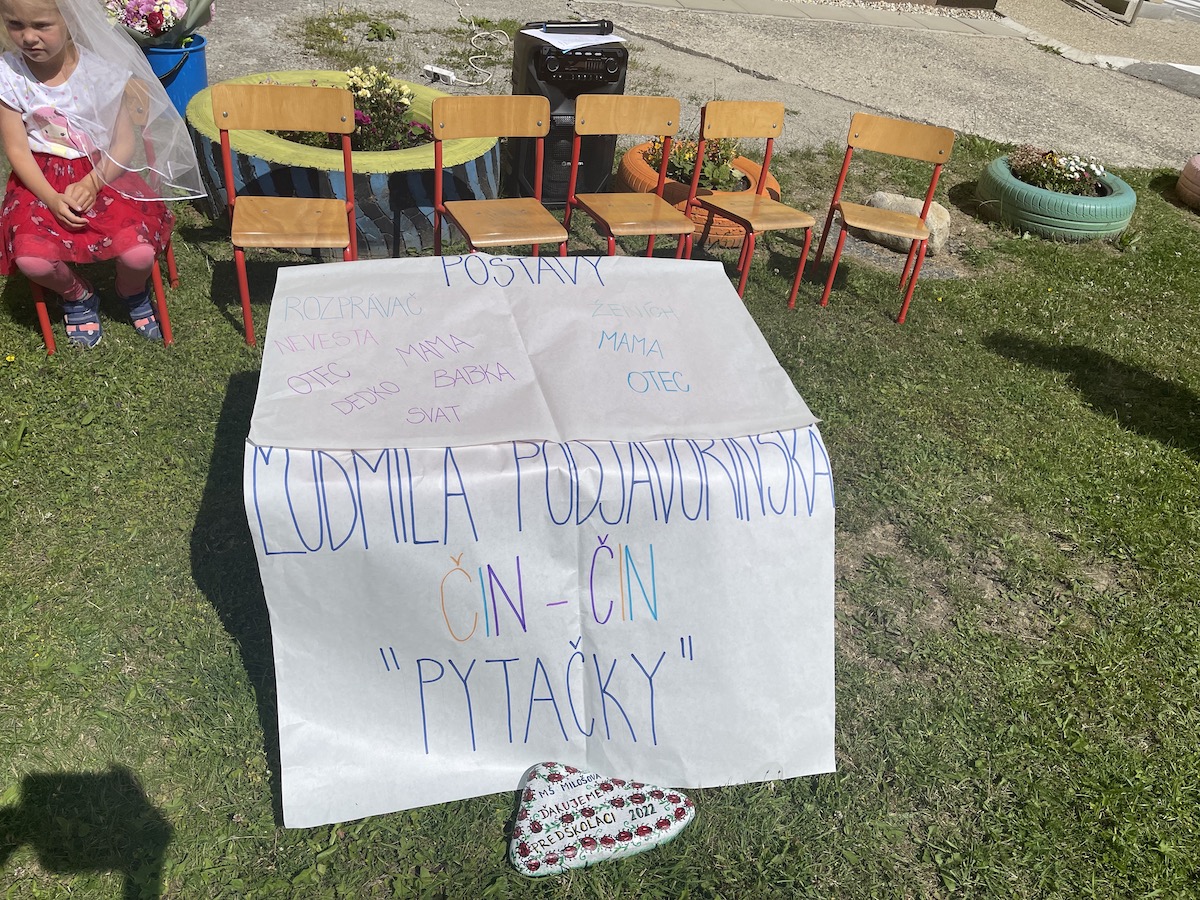 POSTAVY
ROZPRÁVAČ
NEVESTA
OTEC MAMA
DEDKO BABKA
SVAT
ŽENÍCH
MAMA
OTEC
ĽUDMILA PODJAVORINSKÁ
ČIN - ČIN
"PYTAČKY"
MŠ MILOŠOVÁ
ĎAKUJEME
PREDŠKOLÁCI 2022